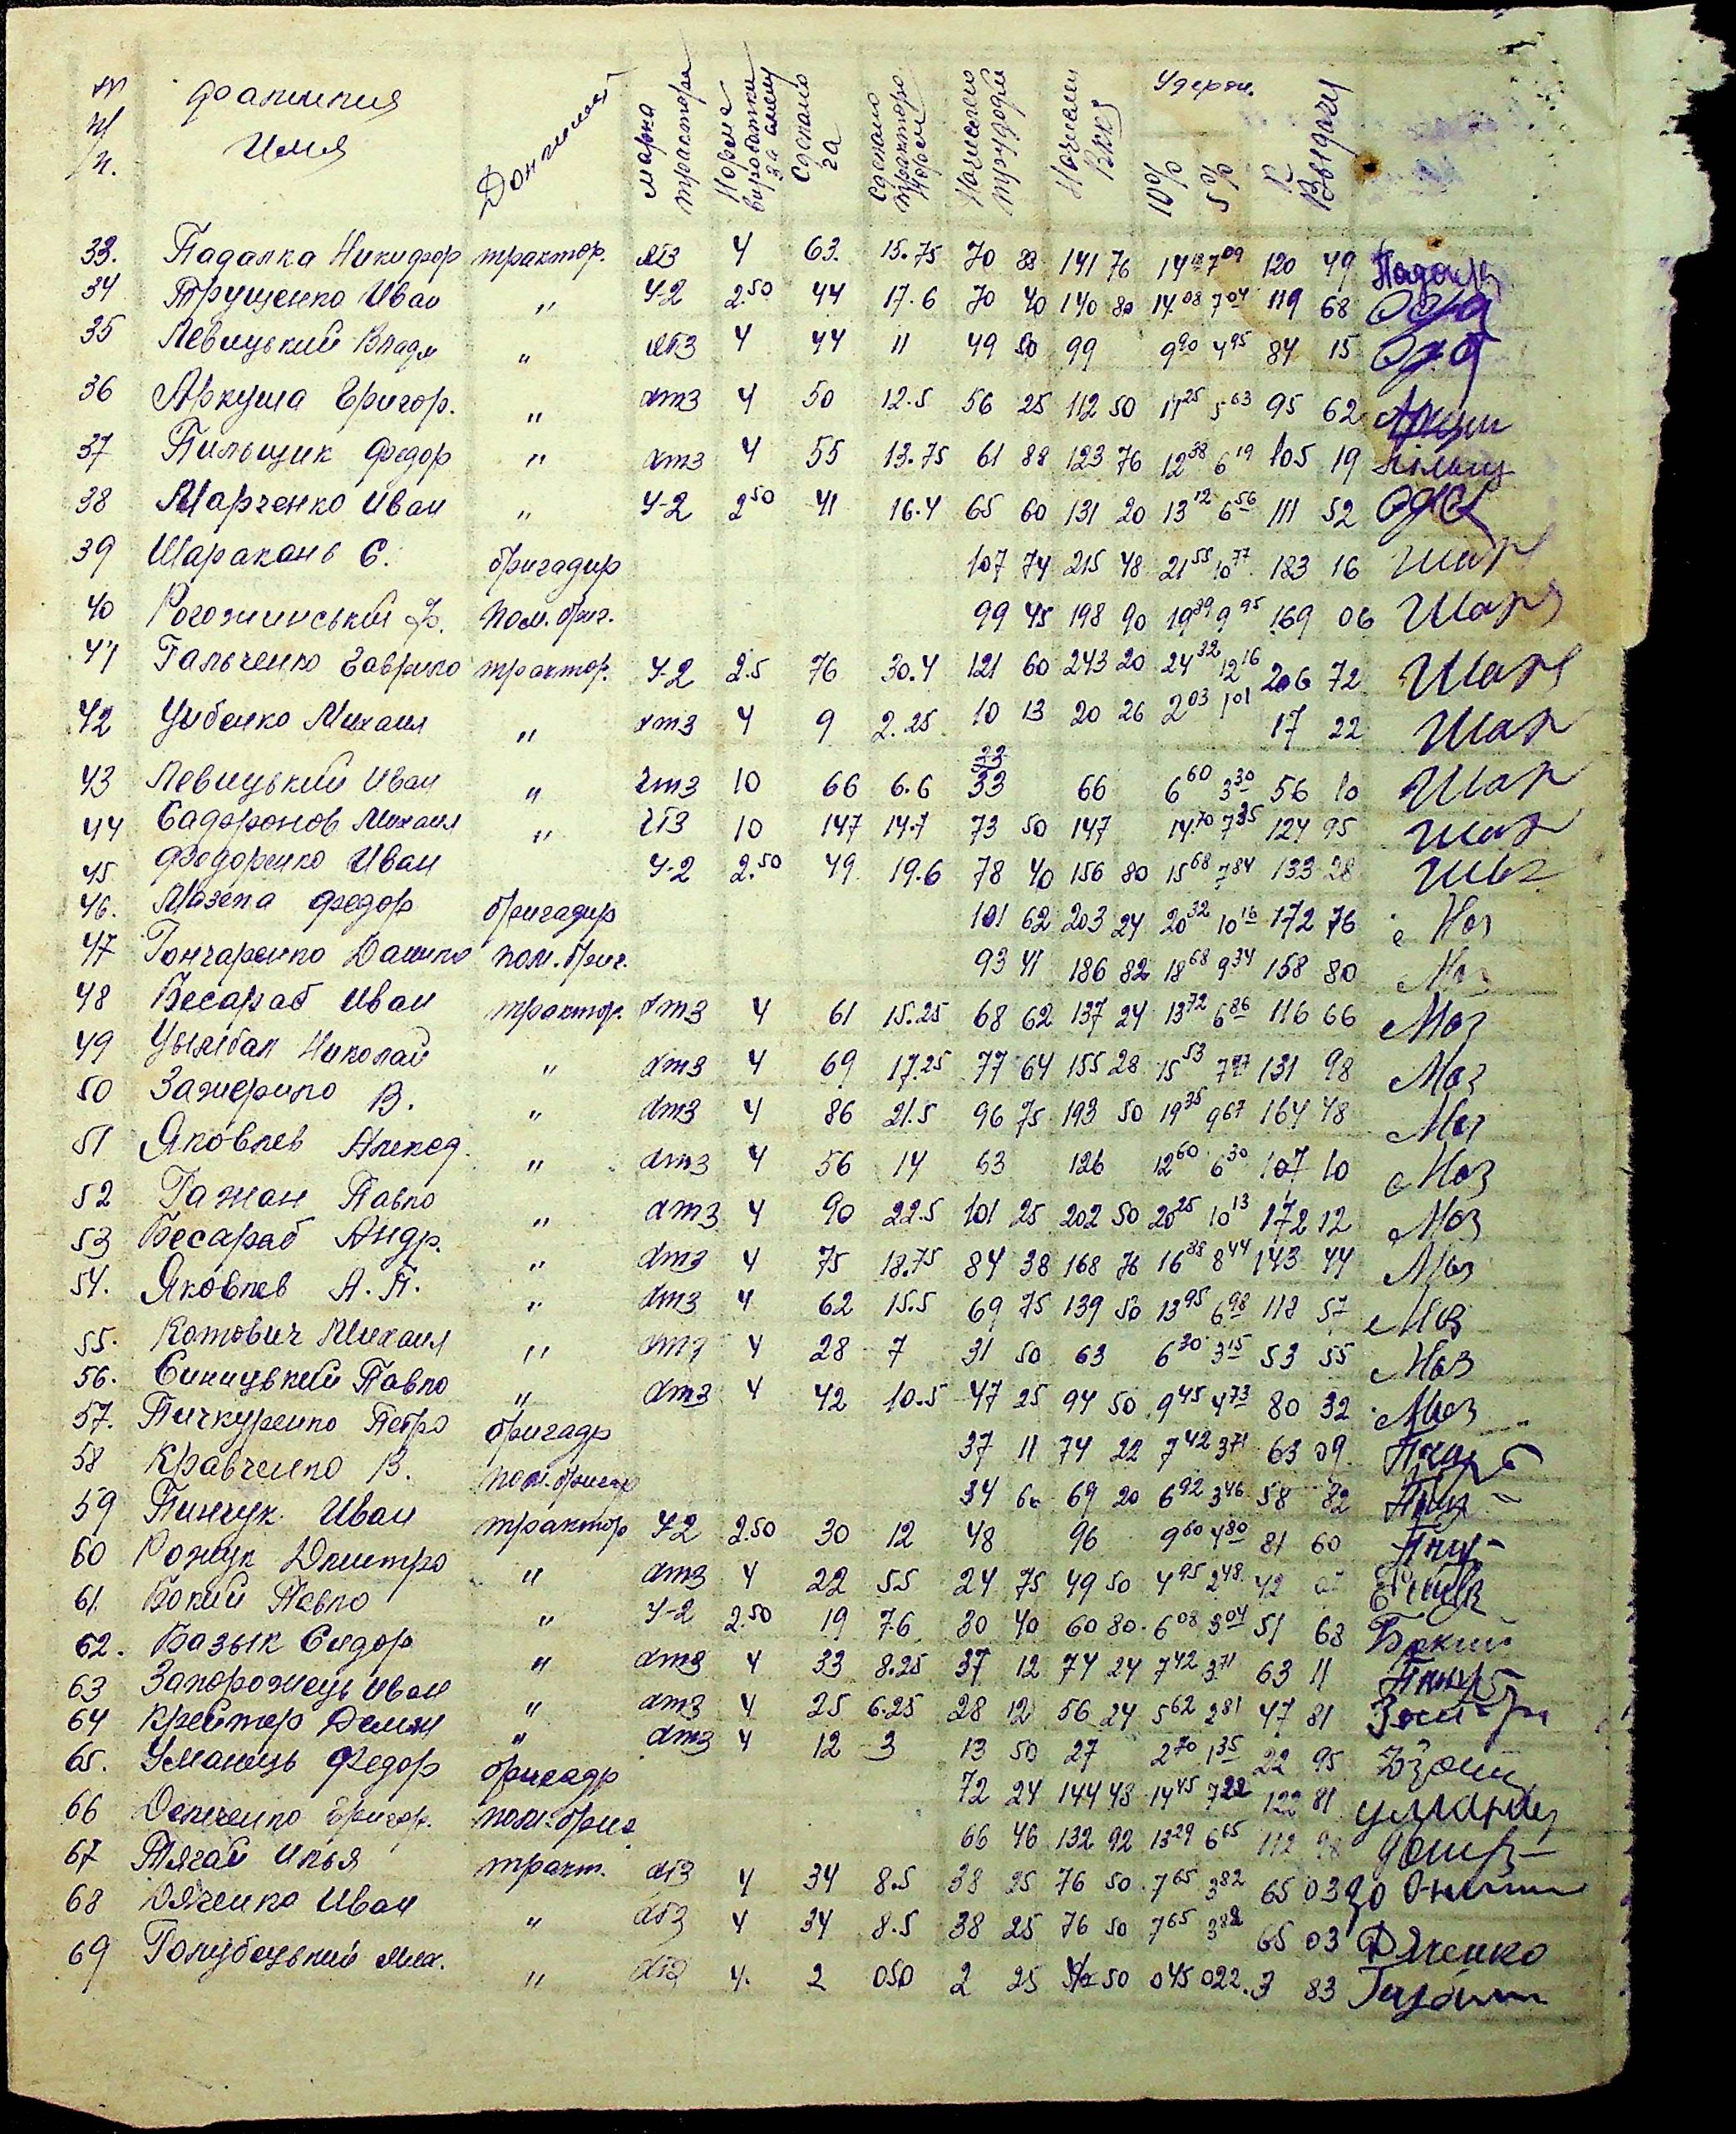 № п/п. Фамилия Имя Должность марка трактора Норма виработки за смену Сделано га Сделано трактора Норм Начислено трудодні Начислен Вкк Удерж. 10% 5% К Выдачи
33. Падалка Никифор трактор. ХТЗ 4 63. 15.75 70 88 141 76 14 18 7 09 120 49 Падалк
34 Трущенко Иван " У-2 2.50 44 17.6 70 40 140 80 14.08 7 04 119 68
35 Левицький Влади " ХТЗ 4 44 11 49 50 99 9 90 4 95 84 15
36 Аркуша Григор. " хтз 4 50 12.5 56 25 112 50 11 25 5 63 95 62 Аркуш
37 Пильщик Федор " хтз 4 55 13.75 61 88 123 76 12 38 6 19 105 19 Пільщ
38 Марченко Иван " У-2 2 50 41 16.4 65 60 131 20 13 12 6 56 111 52
39 Шаракань С. бригадир 107 74 215 48 21 55 10 77 183 16 Шар
40 Рогожинський Ф. пом. бриг. 99 45 198 90 19 89 9 95 169 06 Шар
41 Гальченко Гаврило трактор. У-2 2.5 76 30.4 121 60 243 20 24 32 12 16 206 72 Шар
42 Цибенко Михаил " хтз 4 9 2.25 10 13 20 26 2 03 1 01 17 22 Шар
43 Левицький Иван " чтз 10 66 6.6 33 33 66 6 60 3 30 56 10 Шар
44 Садфронов Михаил " ЧТЗ 10 147 14.7 73 50 147 14.70 7 35 124 95 Шар
45 Федоренко Иван У-2 2.50 49 19.6 78 40 156 80 15 68 7 84 133 28 Шар
46. Мазепа Федор бригадир 101 62 203 24 20 32 10 16 172 76 Маз
47 Гончаренко Данило пом. бриг. 93 41 186 82 18 68 9 34 158 80 Маз
48 Бесараб Иван трактор. хтз 4 61 15.25 68 62 137 24 13 72 6 86 116 66 Маз
49 Цымбал Николай " хтз 4 69 17.25 77 64 155 28 15 53 7 77 131 98 Маз
50 Зажерило В. " хтз 4 86 21.5 96 75 193 50 19 35 9 67 164 48 Маз
51 Яковлев Алексд. " хтз 4 56 14 63 126 12 60 6 30 107 10 Маз
52 Гажан Павло " хтз 4 90 22.5 101 25 202 50 20 25 10 13 172 12 Маз
53 Бесараб Андр. " хтз 4 75 18.75 84 38 168 76 16 88 8 44 143 44 Маз
54. Яковлев А. П. " хтз 4 62 15.5 69 75 139 50 13 95 6 98 118 57 Маз
55. Котович Михаил " хтз 4 28 7 31 50 63 6 30 3 15 53 55 Маз
56. Синицький Павло " хтз 4 42 10.5 47 25 94 50 9 45 4 73 80 32 Маз
57. Пичкуренко Петро бригадр 37 11 74 22 7 42 3 71 63 09
58 Кравченко В. пом. бригад 34 60 69 20 6 92 3 46 58 82
59 Пинчук Иван трактор У-2 2.50 30 12 48 96 9 60 4 80 81 60
60 Рожук Дмитро " хтз 4 22 5.5 24 75 49 50 4 95 2 48 42
61. Бокий Павло " У-2 2.50 19 7.6 30 40 60 80 6 08 3 04 51 68 Бокий
62. Базык Сидор " хтз 4 33 8.25 37 12 74 24 7 42 3 71 63 11
63 Запорожець Иван " хтз 4 25 6.25 28 12 56 24 5 62 2 81 47 81
64 Креймер Демян " хтз 4 12 3 13 50 27 2 70 1 35 22 95
65. Уманець Федор бригадр 72 24 144 48 14 45 7 22 122 81 Уманец
66 Демченко Григор. пом. бриг 66 46 132 92 13 29 6 65 112 98
67 Тягай Илья тракт. ХТЗ 4 34 8.5 38 25 76 50 7 65 3 82 65 03
68 Дяченко Иван " ХТЗ 4 34 8.5 38 25 76 50 7 65 3 82 65 03 Дяченко
69 Голубецький Мих. " ХТЗ 4. 2 050 2 25 4 50 0 45 0 22 3 83